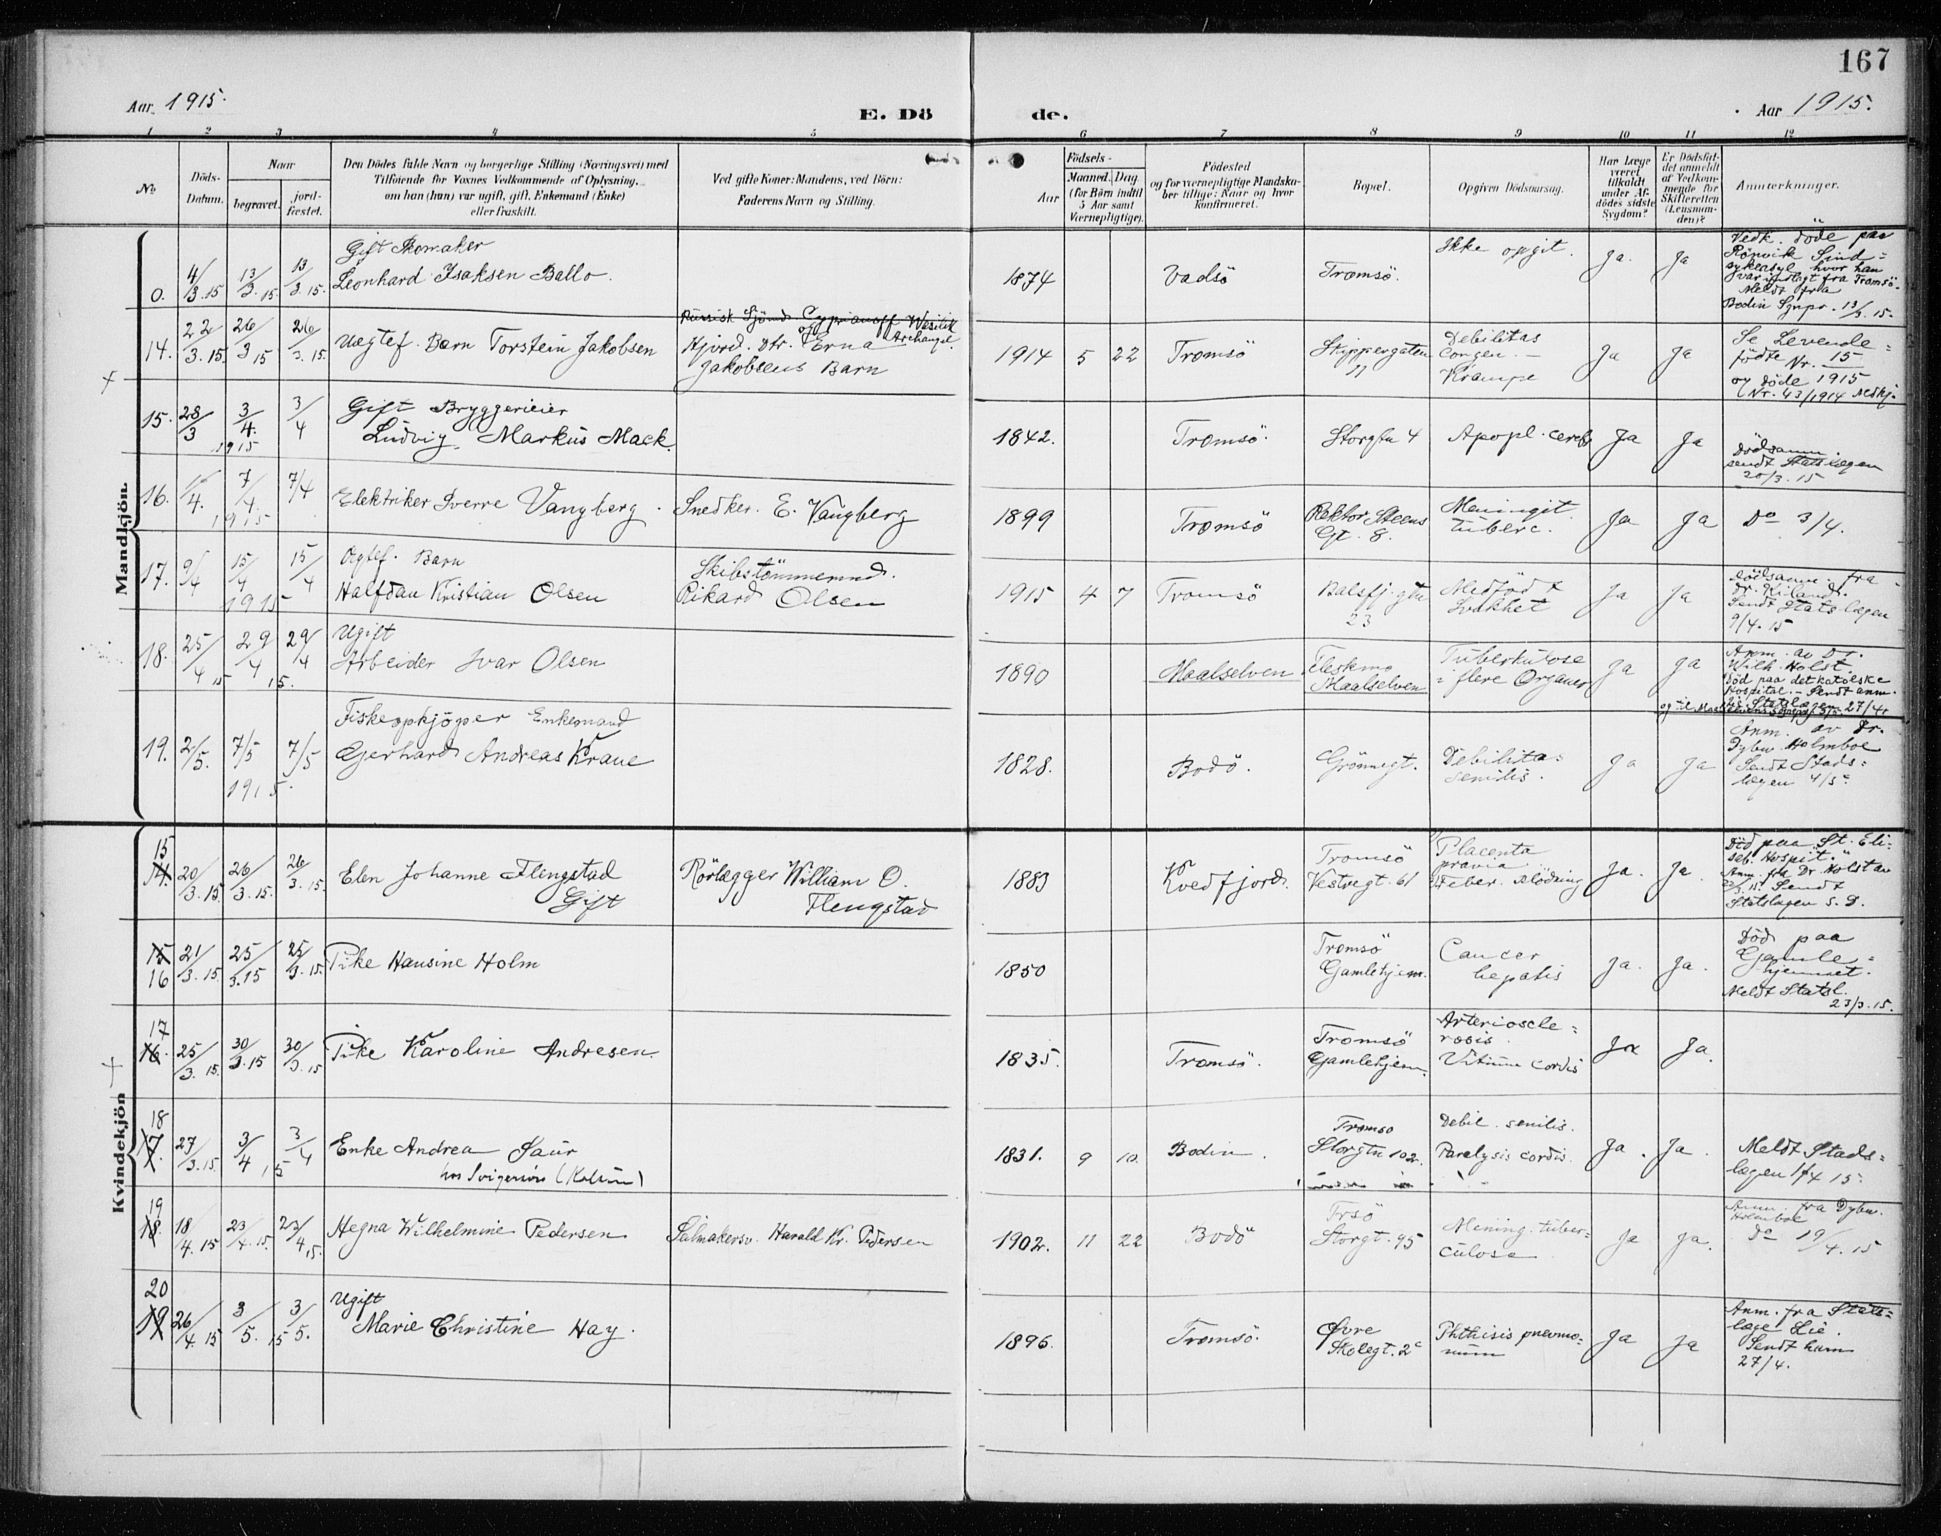 167
Aar 1915.
E. Dö de.
Aar 1915.
1 2 3 4 5 6 7 8 9 10 11 12
No
Döds-Datum.
Naar
begravet.
jord-fæstet.
Den Dödes fulde Navn og borgerlige Stilling (Næringsvei) med
Tilföiende for Voxnes Vedkommende af Oplysning,
om han (hun) var ugift, gift, Enkemand (Enke)
eller fraskilt.
Ved gifte Koner: Mandens, ved Börn:
Faderens Navn og Stilling.
Födsels-
Aar
Maaned. Dag
(for Börn indtil
5 Aar samt
Værnepligtige).
Födested
og for værnepligtige Mandska-
ber tillige: Naar og hvor
konfirmeret.
Bopæl.
Opgiven Dödsaarsag.
Har Læge
været
tilkaldt
under Af-
dödes sidste
Sygdom?
Er Dödsfal-
det anmeldt
af Vedkom-
mende for
Skifteretten
(Lensman-
den)?
Anmærkninger.
Mandkjön.
0. 4/3.15 13/3.15. 13/3.15.
Gift Skomaker
Leonhard Isaksen Ballo.
1874 Vadsö Tromsö. Ikke opgit. Ja. Ja
Vedk. döde paa
Rönvik Sind-
sykeasyl, hvor han
var indlagt fra Tromsö.
Meldt fra
Bodin Sgnpr. 13/3.15.
14. 22/3.15. 26/3 15 26/3.15.
Uegtef. Barn Torstein Jakobsen
Russisk Sjömd. Cyprianoff Wasilik
og Archangel.
Hjvrd. Dtr. Erna
Jakobsens Barn
1914 5 22 Tromsö Skippergaten 11
Debilitas
congen. —
Krampe
Ja Ja
Se Levende-
födte Nr. 15
og döde 1915
(Nr. 43/1914 Nedkj.
15. 28/3 3/4. 1915 3/4
Gift Bryggerieier
Ludvig Markus Mack.
1842. Tromsö. Storgtn 4 Apopl. cereb. Ja Ja
Dödsanm.
sendt Statslægen
20/3.15
16. /4. 7/4 1915 7/4
Elektriker Sverre Vangberg.
Snedker. E. Vangberg
1899 Tromsö
Rektor Steens
Gt. 8.
Meningit
tuberc.
Ja Ja Do 3/4.
17. 9/4 15/4 1915 15/4
Ogtef. Barn
Halfdan Kristian Olsen
Skibstömmermd.
Rikard Olsen
1915 4 7 Tromsö
Balsfj. gtn
23
Medfödt
Svakhet
Ja Ja
Dödsanm. fra
Dr. Kiland.
Sendt Statslægen
9/4. 15
18. 25/4 15 29/4 15. 29/4
Ugift
Arbeider Ivar Olsen
1890 Maalselven
Fleskmo
Maalselven
Tuberkulose
i flere Organer
Ja Ja
Anm. av Dr.
Wilh. Holst.
död paa det katolske
Hospital. – Sendt anm.
til Statslægen 27/4.
19. 2/5. 7/5 1915. 7/5
Fiskeopkjöper Enkemand
Gerhard Andreas Krane
1828. Bodö. Grönnegt.
Debilitas
senilis.
Ja Ja
Anm. av Dr.
Dybw. Holmboe
Sendt Stads-
lægen 4/5
Kvindekjön
15 14. 20/3.15. 26/3.15. 26/3.15.
Elen Johanne Flengstad
Gift
Rörlægger William O.
Flengstad
1883 Kvedfjord.
Tromsö
Vestregt. 61
Placenta
prævia
Feber. Blödning
Ja. Ja.
Död paa St. Eli-
seb. Hospit.
Anm. fra Dr. Holst av
22/3.15. Sendt
Statslægen s. D.
15 16 21/3.15. 25/3.15 25/3.15.
Pike Hansine Holm
1850
Tromsö
Gamlehjem.
Cancer
hepatis
Ja. Ja.
Död paa
Gamle-
hjemmet.
Meldt Statsl.
23/3.15.
17 16. 25/3.15. 30/3.15 30/3.15
Pike Karoline Andresen.
1835. Tromsö.
Tromsö
Gamlehjem.
Arterioscle-
rosis.
Vitium cordis
Ja Ja.
18 17. 27/3.15. 3/4 15 3/4
Enke Andrea Saur
hos Svigersön
1831. 9 10. Bodin.
Tromsö
Storgtn 102.
Debil. senilis.
Paralysis cordis.
Ja. Ja.
Meldt Stads-
lægen 1/4 15
19 18. 18/4.15 23/4.15. 23/4 15.
Hegna Wilhelmine Pedersen
Salmakersv. Harald Kr. Pedersen
1902. 11 22 Bodö
Trsö
Storgt. 95
Mening. tuber-
culosa
Ja Ja.
Anm. fra Dybw.
Holmboe
do 19/4.15
20 19 26/4.15 3/5. 15 3/5.
Ugift
Marie Christine Hay.
1896. Tromsö.
Øvre
Skolegt. 2c
Phthisis pneumo-
num
Ja Ja
Anm. fra Stats-
læge Lie.
Sendt ham
27/4.